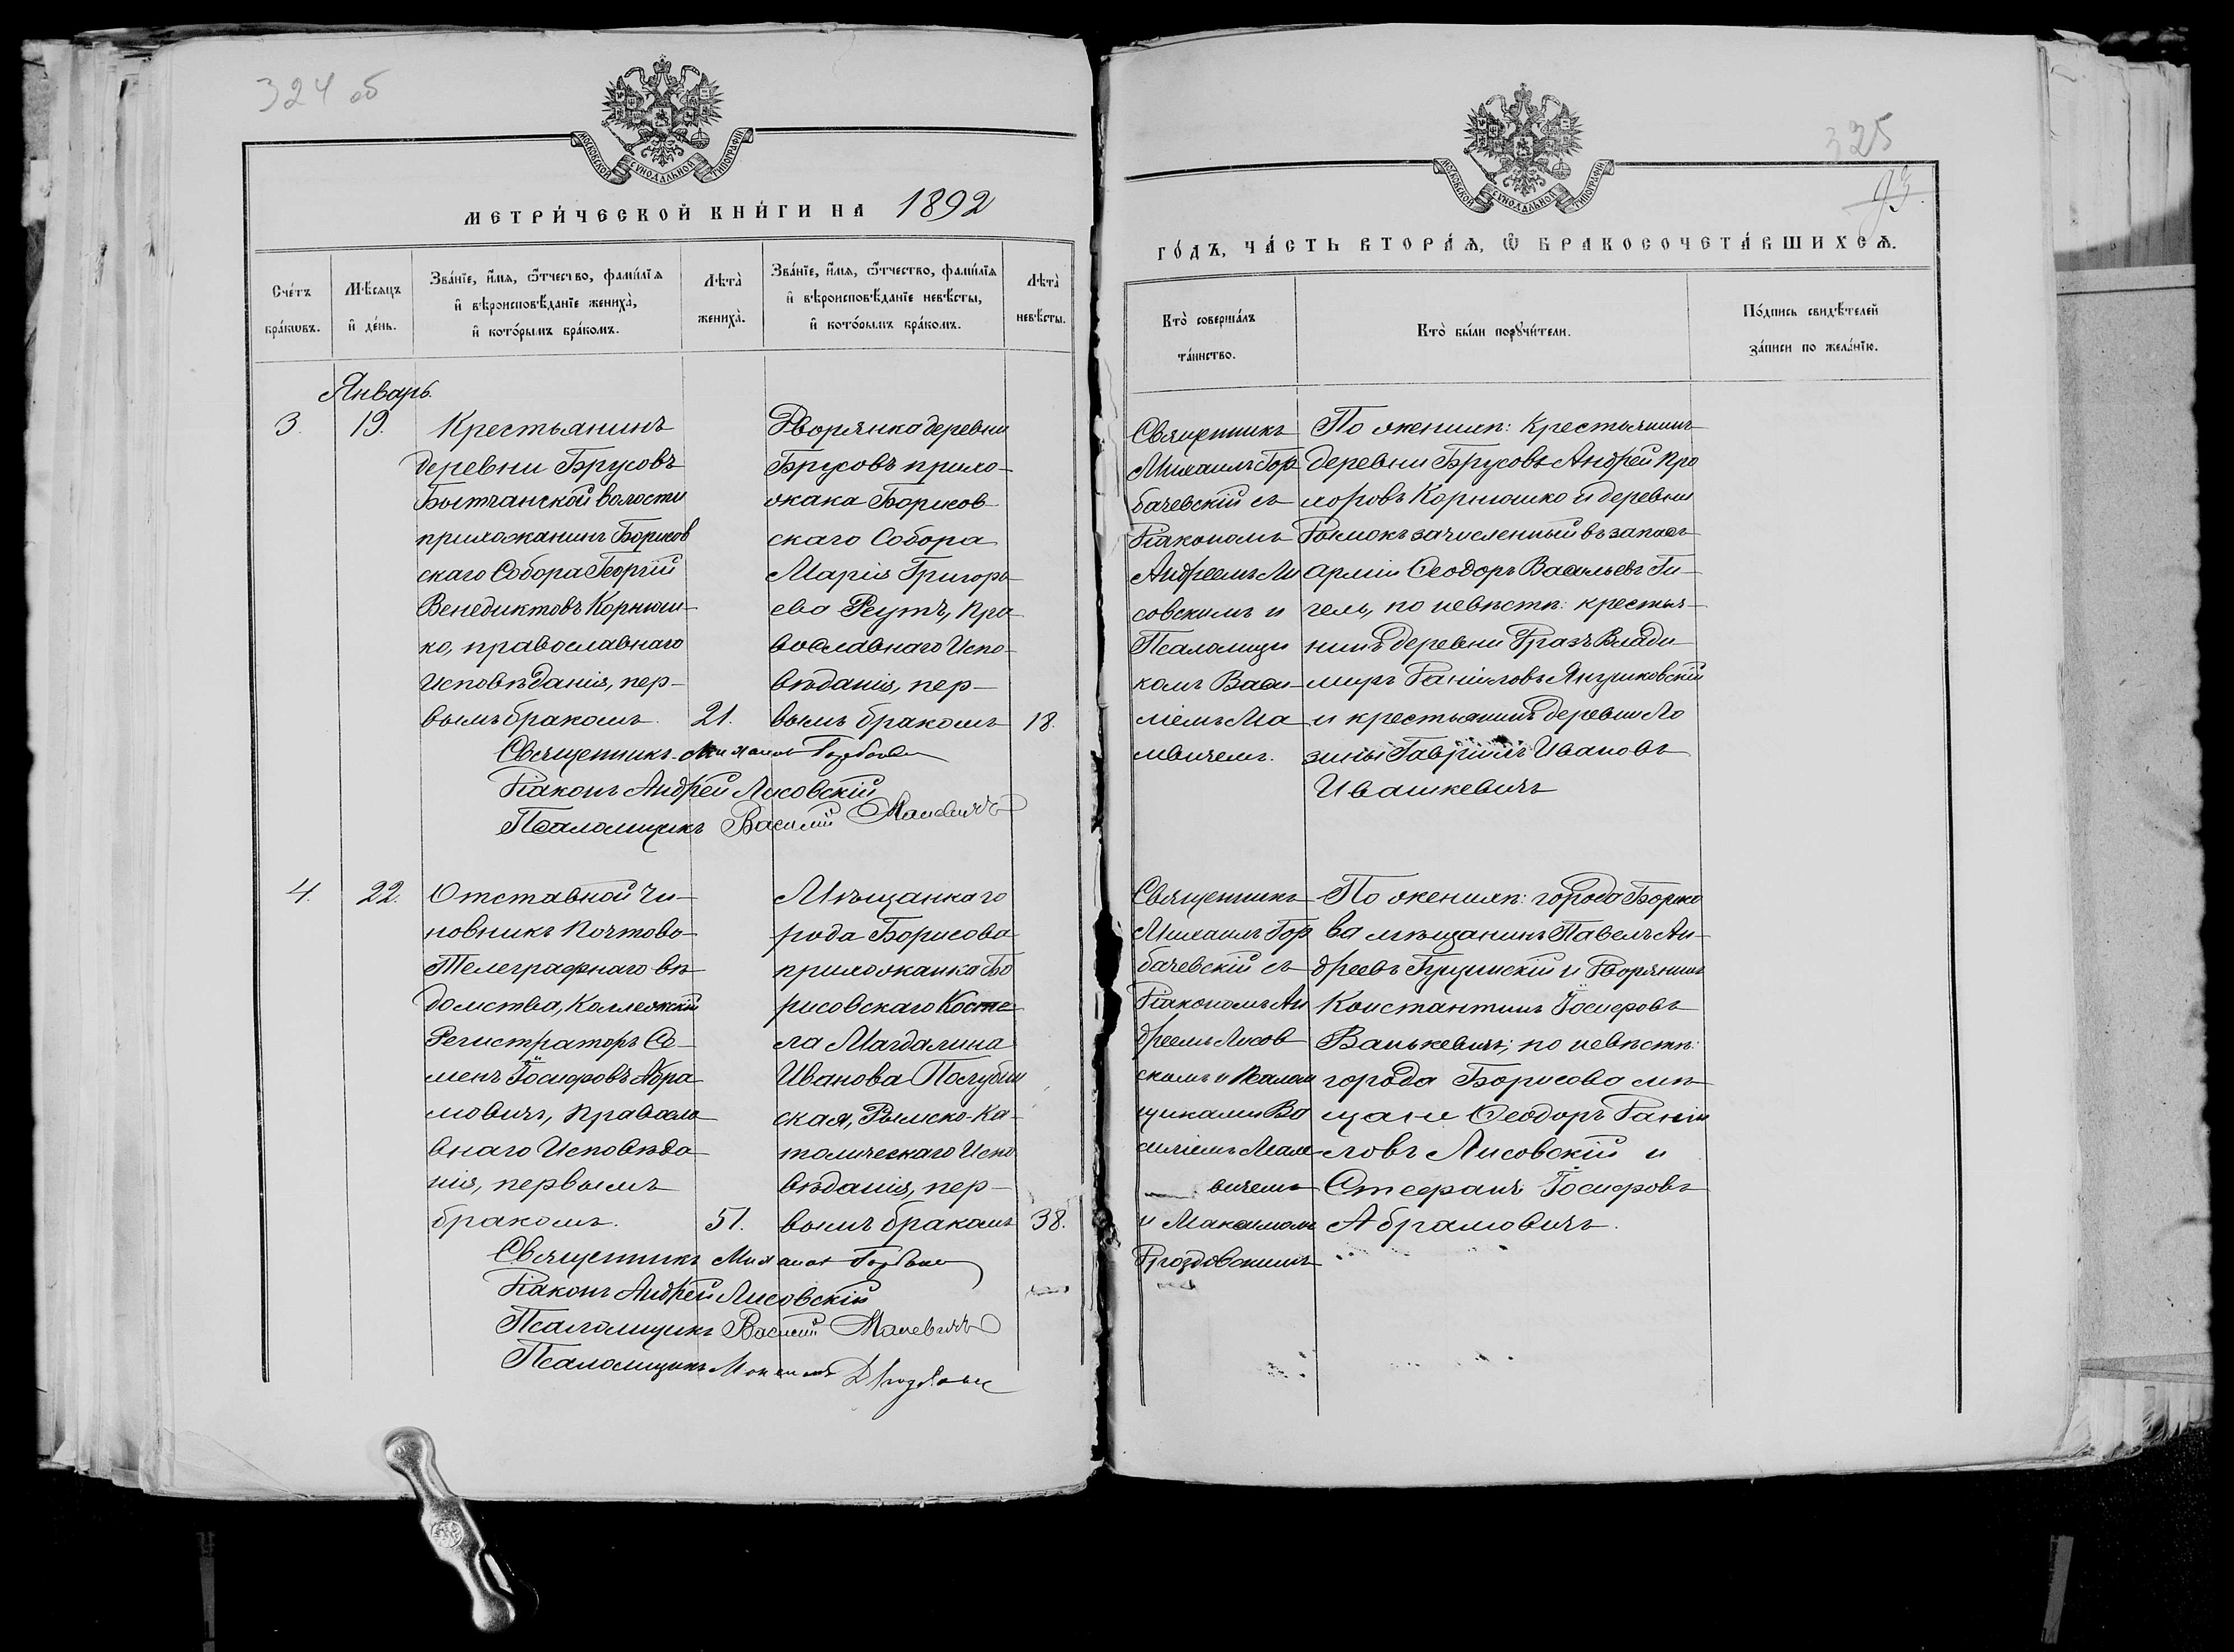 324 об
МОСКОВСКОЙ СУНОДАЛЬНОЙ ТИПОГРАФИ
МЕТРИ́ЧЕСКОЙ КНИ́ГИ НА 1892
Сче́тъ бра́ковъ.
Мѣ́сяцъ и҆ де́нь.
Зва́нїе, и҆́мя, ѻ҆́тчество, фами́лїя
и҆ вѣроисповѣ́данїе жениха̀,
и҆ кото́рымъ бра́комъ.
Лѣта̀ жениха̀.
Зва́нїе, и҆́мя, ѻ҆́тчество, фами́лїя
и҆ вѣроисповѣ́данїе невѣ́сты,
и҆ кото́рымъ бра́комъ.
Лѣта̀ невѣ́сты.
Январь.
3.
19.
Крестьянинъ
деревни Брусовъ
Бытчанской волости
прихожанинъ Борисов
скаго Собора Георгій
Венедиктовъ Корнюш-
ко, православнаго
Исповѣданія, пер-
вымъ бракомъ.
21.
Дворянка деревни
Брусовъ прихо-
жанка Борисов-
скаго Собора
Марія Григорь-
ева Реутъ, Пра-
вославнаго Испо-
вѣданія, пер-
вымъ бракомъ
18.
Священникъ Михаилъ Горбачевскій
Діаконъ Андрей Лисовскій
Псаломщикъ Василій Малевичъ
4.
22.
Отставной Чи-
новникъ Почтово-
Телеграфнаго вѣ-
домства, Коллежскій
Регистраторъ Се-
менъ Іосифовъ Абра-
мовичъ, Правосла-
внаго Исповѣда-
нія, первымъ
бракомъ.
51.
Мѣщанка го
рода Борисова
прихожанка Бо
рисовскаго Косте-
ла Магдалина
Иванова Полубин
ская, Римско-Ка-
толическаго Испо-
вѣданія, пер-
вымъ бракомъ
38.
Священникъ Михаилъ Горбачевскій
Діаконъ Андрей Лисовскій
Псаломщикъ Василій Малевичъ
Псаломщикъ Максимъ Дроздовскій
325
93.
МОСКОВСКОЙ СУНОДАЛЬНОЙ ТИПОГРАФИ
ГО́ДЪ, ЧА́СТЬ ВТОРА́Я, Ѽ БРАКОСОЧЕТА́ВШИХСЯ.
Кто̀ соверша́лъ
та́инство.
Кто̀ бы́ли порꙋчи́тели.
По́дпись свидѣ́телей
за́писи по жела́нїю.
Священникъ
Михаилъ Гор
бачевскій съ
Діакономъ
Андреемъ Ли
совскимъ и
Псаломщи
комъ Васи-
ліемъ Ма
левичемъ.
По женихѣ: Крестьянинъ
деревни Брусовъ Андрей Про
хоровъ Корнюшко и деревни
Дымокъ зачисленный въ запасъ
арміи Ѳеодоръ Васильевъ Ги-
гель, по невѣстѣ: крестья-
нинъ деревни Гразъ Влади
миръ Даниловъ Янушковскій
и крестьянинъ деревни Ло
зины Гавріилъ Ивановъ
Ивашкевичъ
Священникъ
Михаилъ Гор
бачевскій съ
Діакономъ Ан
дреемъ Лисов
скимъ и Псалом
щиками Ва
силіемъ Мале-
вичемъ
и Максимомъ
Дроздовскимъ
По женихѣ: города Борисо
ва мѣщанинъ Павелъ Ан-
дреевъ Пруцискій и Дворянинъ
Константинъ Іосифовъ
Ванькевичъ; по невѣстѣ:
города Борисова мѣ-
щане Ѳеодоръ Даніи
ловъ Лисовскій и
Стефанъ Іосифовъ
Абрамовичъ.